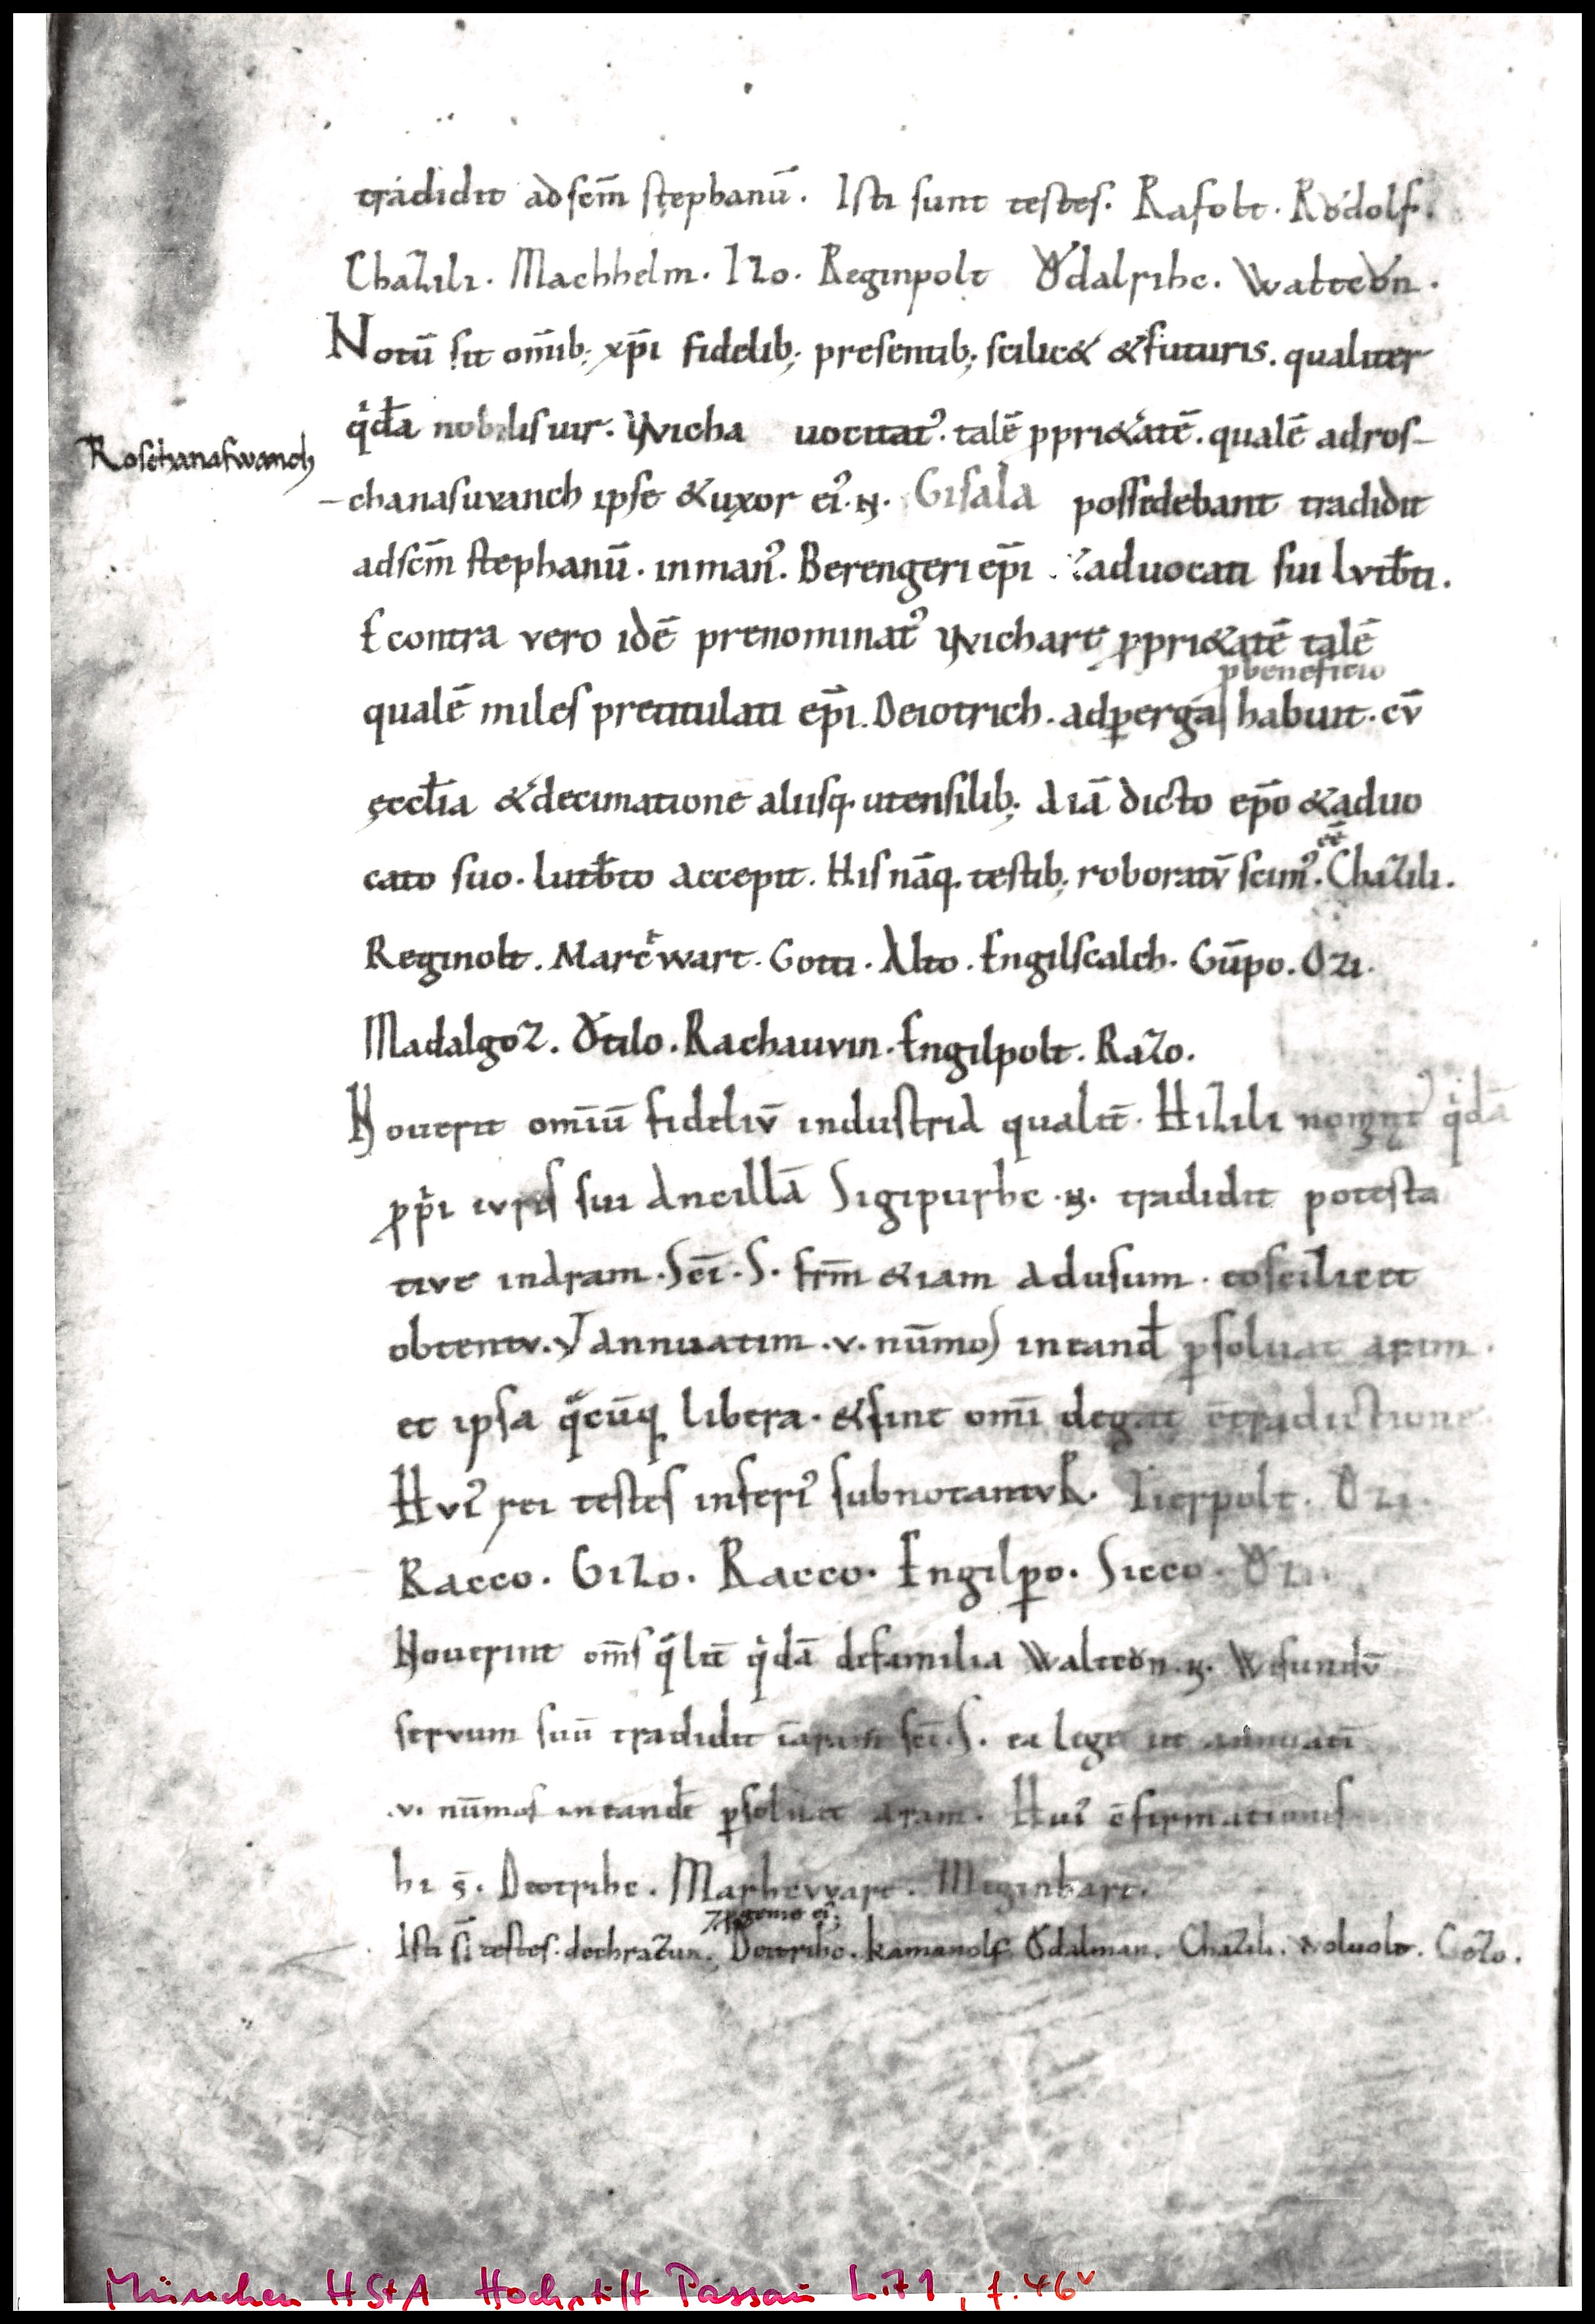 tradidit ad scm̄ stephanū. Isti sunt testes. Rafolt. Rŏdolf.
Chazili. Machhelm. Izo. Reginpolt Ŏdalrihc. Waltcŏn.
Notū sit om̄ib; xp̄i fidelib; presentib; scilic& &futuris. qualiter
Roschanafwanch
qͥdā nobilis uir. Wicha uocitatꝰ. talē ꝓpri&atē. qualē adros-
-chanasuvanch ipse &uxor eiꝰ. N. Gisala possedebant tradidit
adscm̄ stephanū. inmanꝰ. Berengeri ep̄i. ⁊aduocati sui Lvtb̄ti.
Econtra vero idē prenominatꝰ Wichart ꝓpri&atē talē
ꝓbeneficio
qualē miles pretitulati ep̄i. Deiotrich. adꝑerga habuit. cv̄
ęccl̄ia &decimatione aliisq. utensilib; a iā dicto ep̄o &aduo
ēē
cato suo. Lutb̄to accepit. His nāq. testib; roboratv̄ scimꝰ. Chazili.
Reginolt. Marcͪwart. Gotti. Alto. Engilscalch. Gūpo. Ozi.
Madalgoz. Ŏtilo. Rachauvin. Engilpolt. Razo.
Nouerit omīū fideliv̄ industria qualit̄. Hizili qͥdā
ꝓpͥi ivris sui ancillā Sigipurhc .N. tradidit potesta
tive in aram. Sc̄i. S. frm̄ &iam adusum. eo scilicet
obtentv. V annuatim .v. nūmos in eand̄ ꝑsoluat aram.
et ipsa qͣcūq libera. &sine om̄i degat c̄tradictione
Hviꝰ rei testes inferiꝰ subnotantvR. Ozi.
Racco. Gizo. Racco. Engilꝑo. Sicco. Ŏzi.
Nouerint om̄s qͣlit̄ qͥdā defamilia Waltcŏn .N. Wisundv̄
servum suū tradidit īaram sc̄i. S. ea lege ut annuatī
.v. nūmos in eande ꝑsoluat aram. Huiꝰ c̄firmationis
hi s̄. Deotrihc. Marhcvvart. Meginhart.
eiꝰ
Isti s̄t testes. dechrazun. Deotrihc. kamanolf. Ŏdalman. Chazili. Wolvolt. Cozo.
München HStA Hochstift Passau L. 71, f. 46v